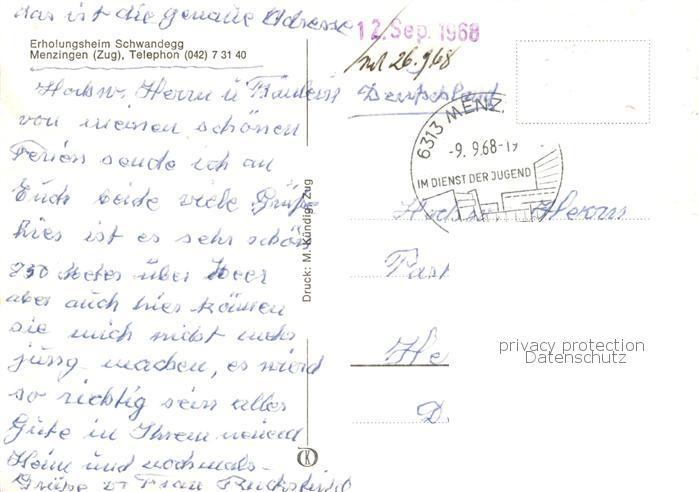 das ist die genaue Adresse
12. Sep. 1968
26.9.68
Erholungsheim Schwandegg
Menzingen (Zug), Telephon (042) 7 31 40
Hochw. Herrn u Fräulein
Deutschland
von meinen schönen
Ferien sende ich an
Euch beide viele Grüße
hier ist es sehr schön
850 Meter über Meer
aber auch hier können
sie mich nicht mehr
jung machen, es wird
so richtig sein alles
Gute in Ihrem neuen
Heim und nochmals
Grüße v Frau
Druck: M. Kündig, Zug
6313 MENZ
-9. 9.68-19
IM DIENST DER JUGEND
Hochw Herrn
He
D.
privacy protection
Datenschutz